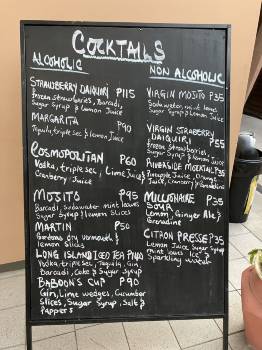 COCKTAILS
ALCOHOLIC
NON ALCOHOLIC
STRAWBERRY DAIQUIRI P115
frozen Strawberries, Barcadi,
Sugar Syrup & Lemon Juice
MARGARITA P90
Tequila, triple sec & lemon Juice
COSMOPOLITAN P60
Vodka, triple sec, Lime Juice &
Cranberry Juice
MOJITO P95
Barcadi, Sodawater mint leaves
Sugar Syrup & lemon Slices
MARTIN P50
Gordons dry vermouth &
lemon Slices
LONG ISLAND ICED TEA P140
Vodka, triple sec, Tequila, Gin
Barcadi, Coke & Sugar Syrup
BABOON'S CUP P90
Gin, Lime wedges, Cucumber
slices, Sugar Syrup, Salt &
Peppers
VIRGIN MOJITO P35
Sodawater, mint leaves
Sugar Syrup & lemon Juice
VIRGIN STRABERRY
DAIQUIRI P55
frozen Strawberries,
Sugar Syrup & lemon Juice
RIVERSIDE MOCKTAIL P35
Pineapple Juice, Orange
Juice, Cranberry & Grenadine
MILLIONAIRE P35
SOUR
Lemon, Ginger Ale &
Grenadine
CITRON PRESSE P35
Lemon Juice, Sugar Syrup
Mint leaves Ice &
Sparkling water